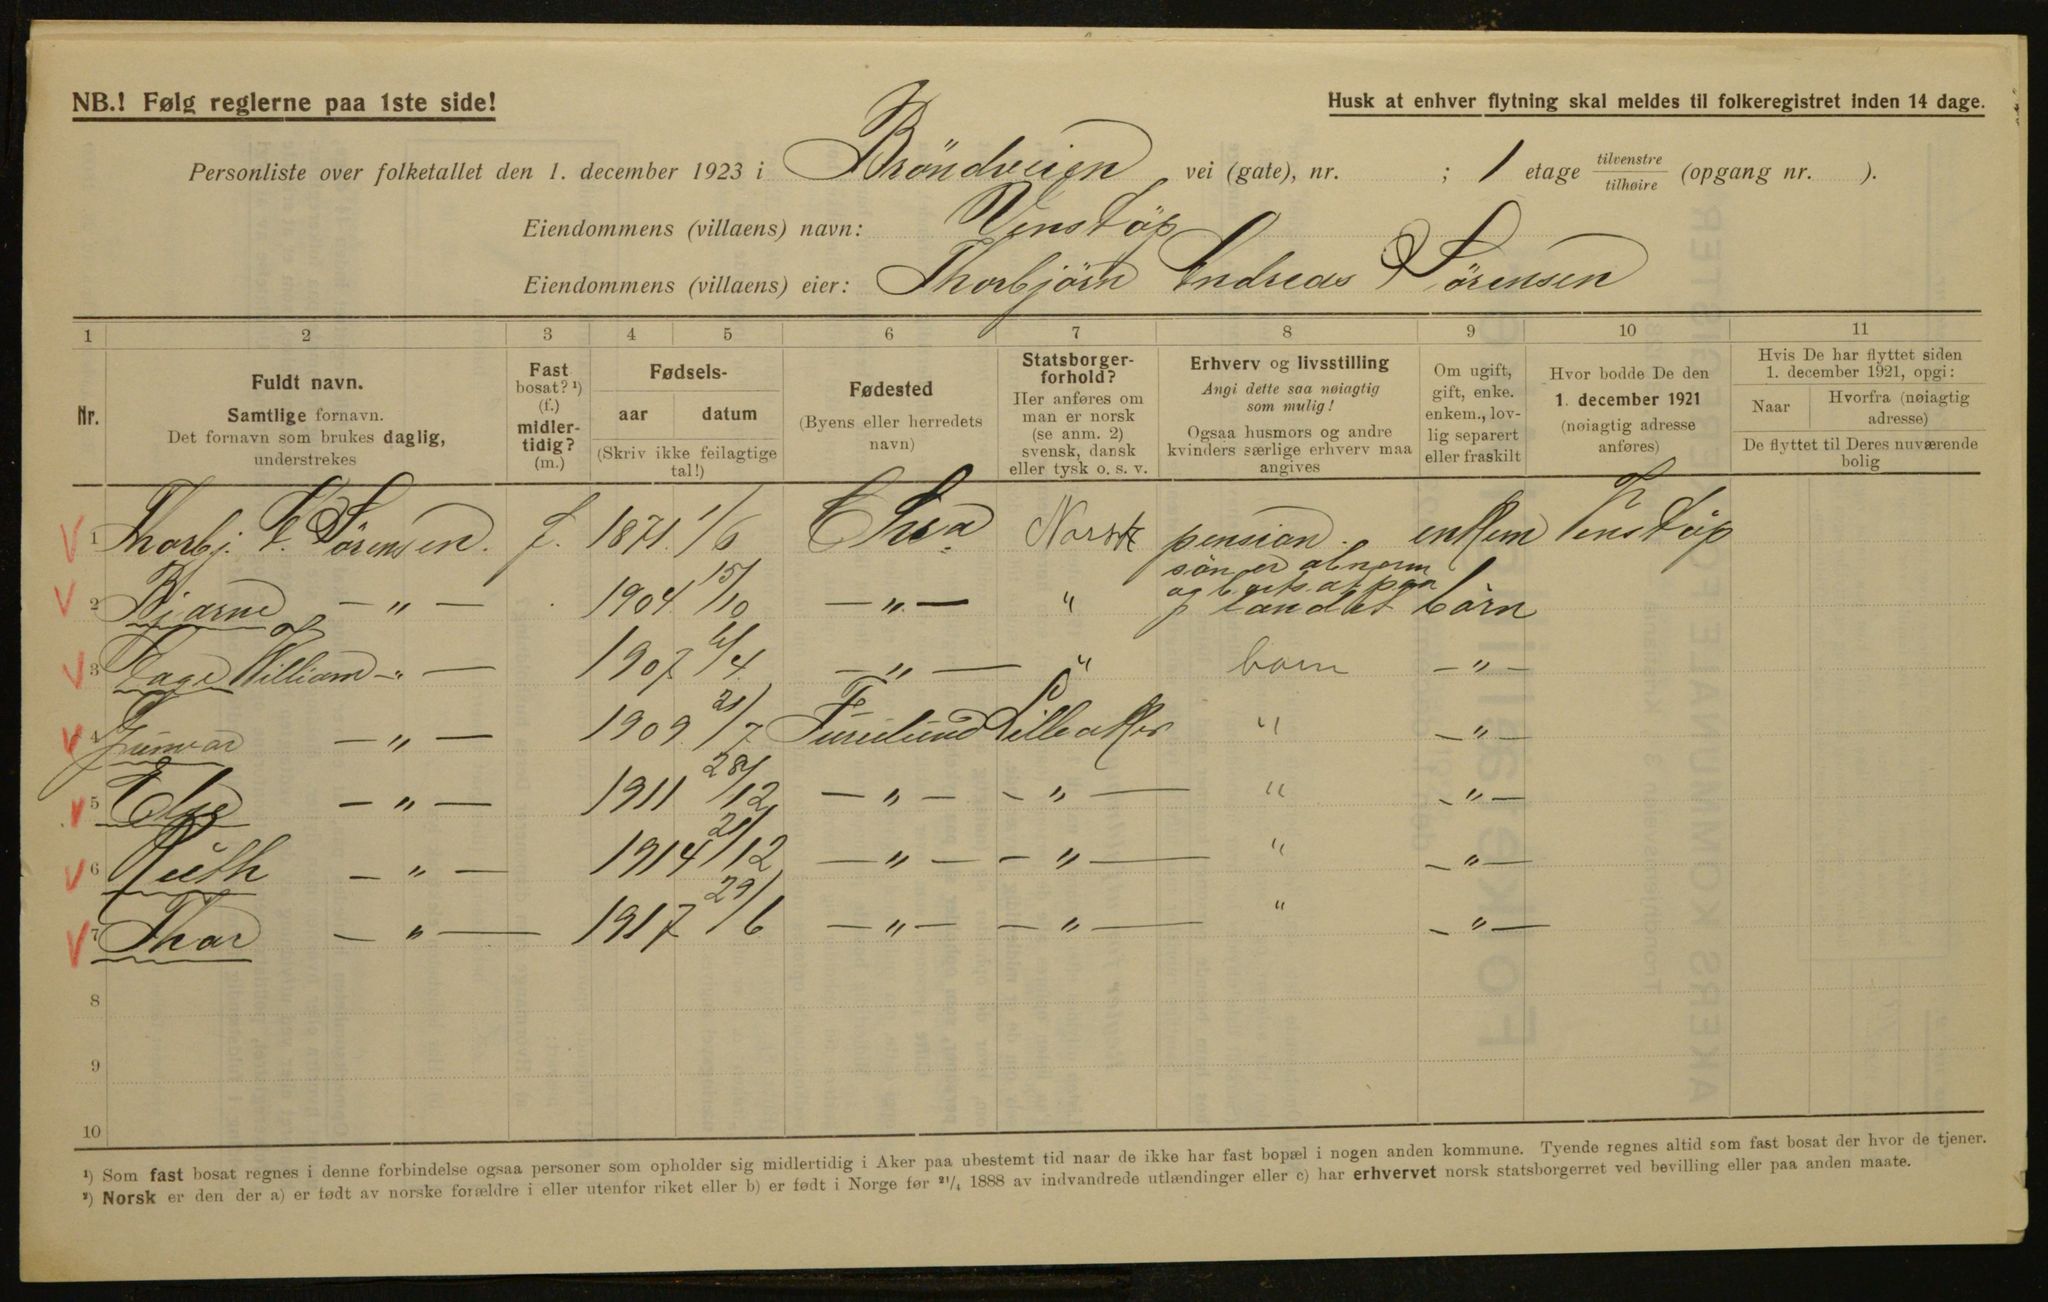 NB.! Følg reglerne paa 1ste side!
Husk at enhver flytning skal meldes til folkeregistret inden 14 dage.
Personliste over folketallet den 1. december 1923 i Bröndveien vei (gate), nr. ; 1 etage tilvenstre tilhøire (opgang nr. ).
Eiendommens (villaens) navn: Venstöp
Eiendommens (villaens) eier: Thorbjörn Andreas Sörensen
1 2 3 4 5 6 7 8 9 10 11
Nr.
Fuldt navn.
Samtlige fornavn.
Det fornavn som brukes daglig,
understrekes
Fast
bosat? ¹)
(f.)
midler-
tidig?
(m.)
Fødsels-
aar datum
(Skriv ikke feilagtige
tal!)
Fødested
(Byens eller herredets
navn)
Statsborger-
forhold?
Her anføres om
man er norsk
(se anm. 2)
svensk, dansk
eller tysk o. s. v.
Erhverv og livsstilling
Angi dette saa nøiagtig
som mulig!
Ogsaa husmors og andre
kvinders særlige erhverv maa
angives
Om ugift,
gift, enke.
enkem., lov-
lig separert
eller fraskilt
Hvor bodde De den
1. december 1921
(nøiagtig adresse
anføres)
Hvis De har flyttet siden
1. december 1921, opgi:
Naar
Hvorfra (nøiagtig
adresse)
De flyttet til Deres nuværende
bolig
1 Thorbj. Sörensen. f. 1871 1/6 Norsk pension. enkem Venstöp
sön er abnorm
og bortsat paa
2 Bjarne — " — 1904 15/10 — " — " landet börn
3 Tage William — " — 1907 /4 — " — " barn — " —
4 Gunvor — " — 1909 21/7 Furulund Lilleaker " — " —
5 Else — " — 1911 28/12 — " — — " — " — " —
6 Ruth — " — 1914 21/12 — " — — " — " — " —
7 Thor — " — 1917 29/6 — " — — " — " — " —
8
9
10
¹) Som fast bosat regnes i denne forbindelse ogsaa personer som opholder sig midlertidig i Aker paa ubestemt tid naar de ikke har fast bopæl i nogen anden kommune. Tyende regnes altid som fast bosat der hvor de tjener.
²) Norsk er den der a) er født av norske forældre i eller utenfor riket eller b) er født i Norge før ²¹/₄ 1888 av indvandrede utlændinger eller c) har erhvervet norsk statsborgerret ved bevilling eller paa anden maate.